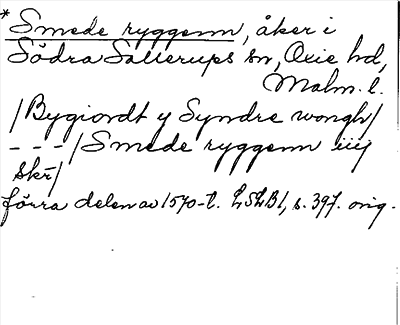 * Smede ryggenn, åker i
Södra Sallerups sn, Oxie hd,
Malm. l.
/Bygiordt y Syndre wongh/
- - -/Smede ryggenn iiij
skr/
förra delen av 1570-t. LSLB1, s. 397. orig.